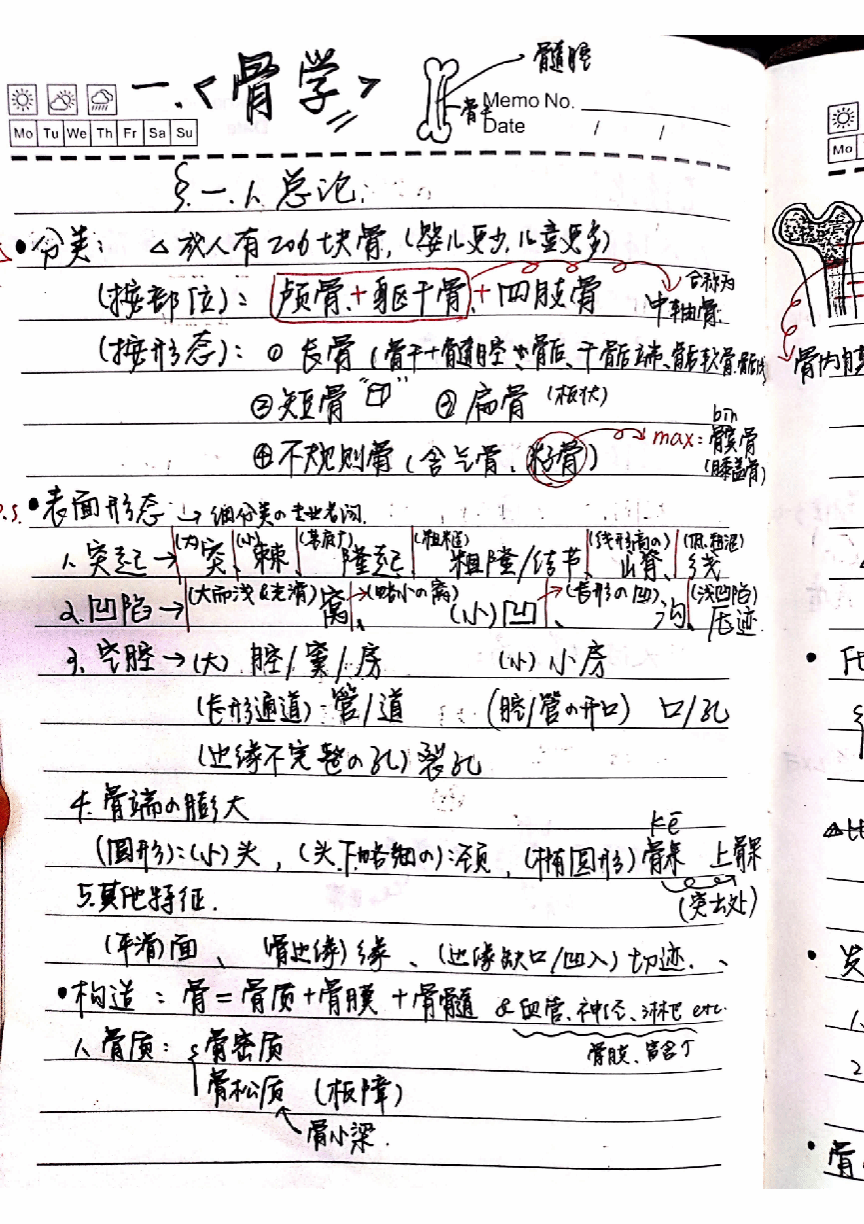 一.《骨学》
髓腔
骨干
Memo No.
Mo Tu We Th Fr Sa Su
Date / /
§.一.1.总论.
•分类: △成人有206块骨,(婴儿更少,儿童更多)
(按部位): 颅骨+躯干骨+四肢骨
合称为
中轴骨.
(按形态): ① 长骨 (骨干+髓腔 骨后、干骺端、骺软骨.骺线)
②短骨 “印” ③ 扁骨 (板状)
④不规则骨 (含气骨、籽骨) max: 髌骨
bīn
(膝盖骨)
P.S. •表面形态 → 细分类の专业名词.
1.突起→ (大)突、(小)棘、(基底广)隆起、(粗糙)粗隆/结节、(线形高の)山脊、(低.粗涩)线
2.凹陷→ (大而浅&光滑)窝、(略小の窝)(小)凹、(长形の凹)沟、(浅凹陷)压迹.
3.空腔→(大) 腔/窦/房 (小)小房
(长形通道)-管/道 (腔/管の开口) 口/孔
(边缘不完整の孔)裂孔
4.骨端の膨大
kē
(圆形):(小)头, (头下略细の):颈, (椭圆形)髁 上髁
(突出处)
5.其他特征.
(平滑)面、 (骨边缘)缘、(边缘缺口/凹入)切迹.、
•构造: 骨=骨质+骨膜+骨髓 &血管、神经、淋巴 etc.
骨膜、富含了
1.骨质: 骨密质
骨松质 (板障)
骨小梁.
Mo
骨内膜
发
1.
2
骨